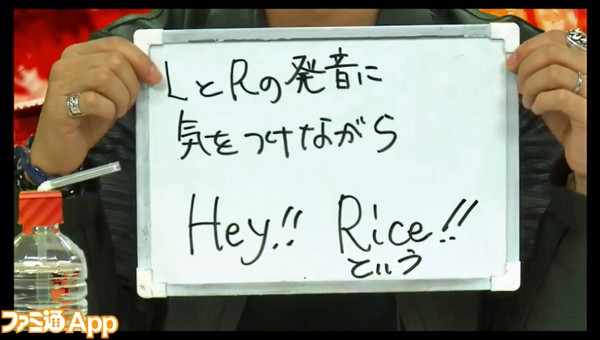 LとRの発音に
気をつけながら
Hey!! Rice!!
という
ファミ通App